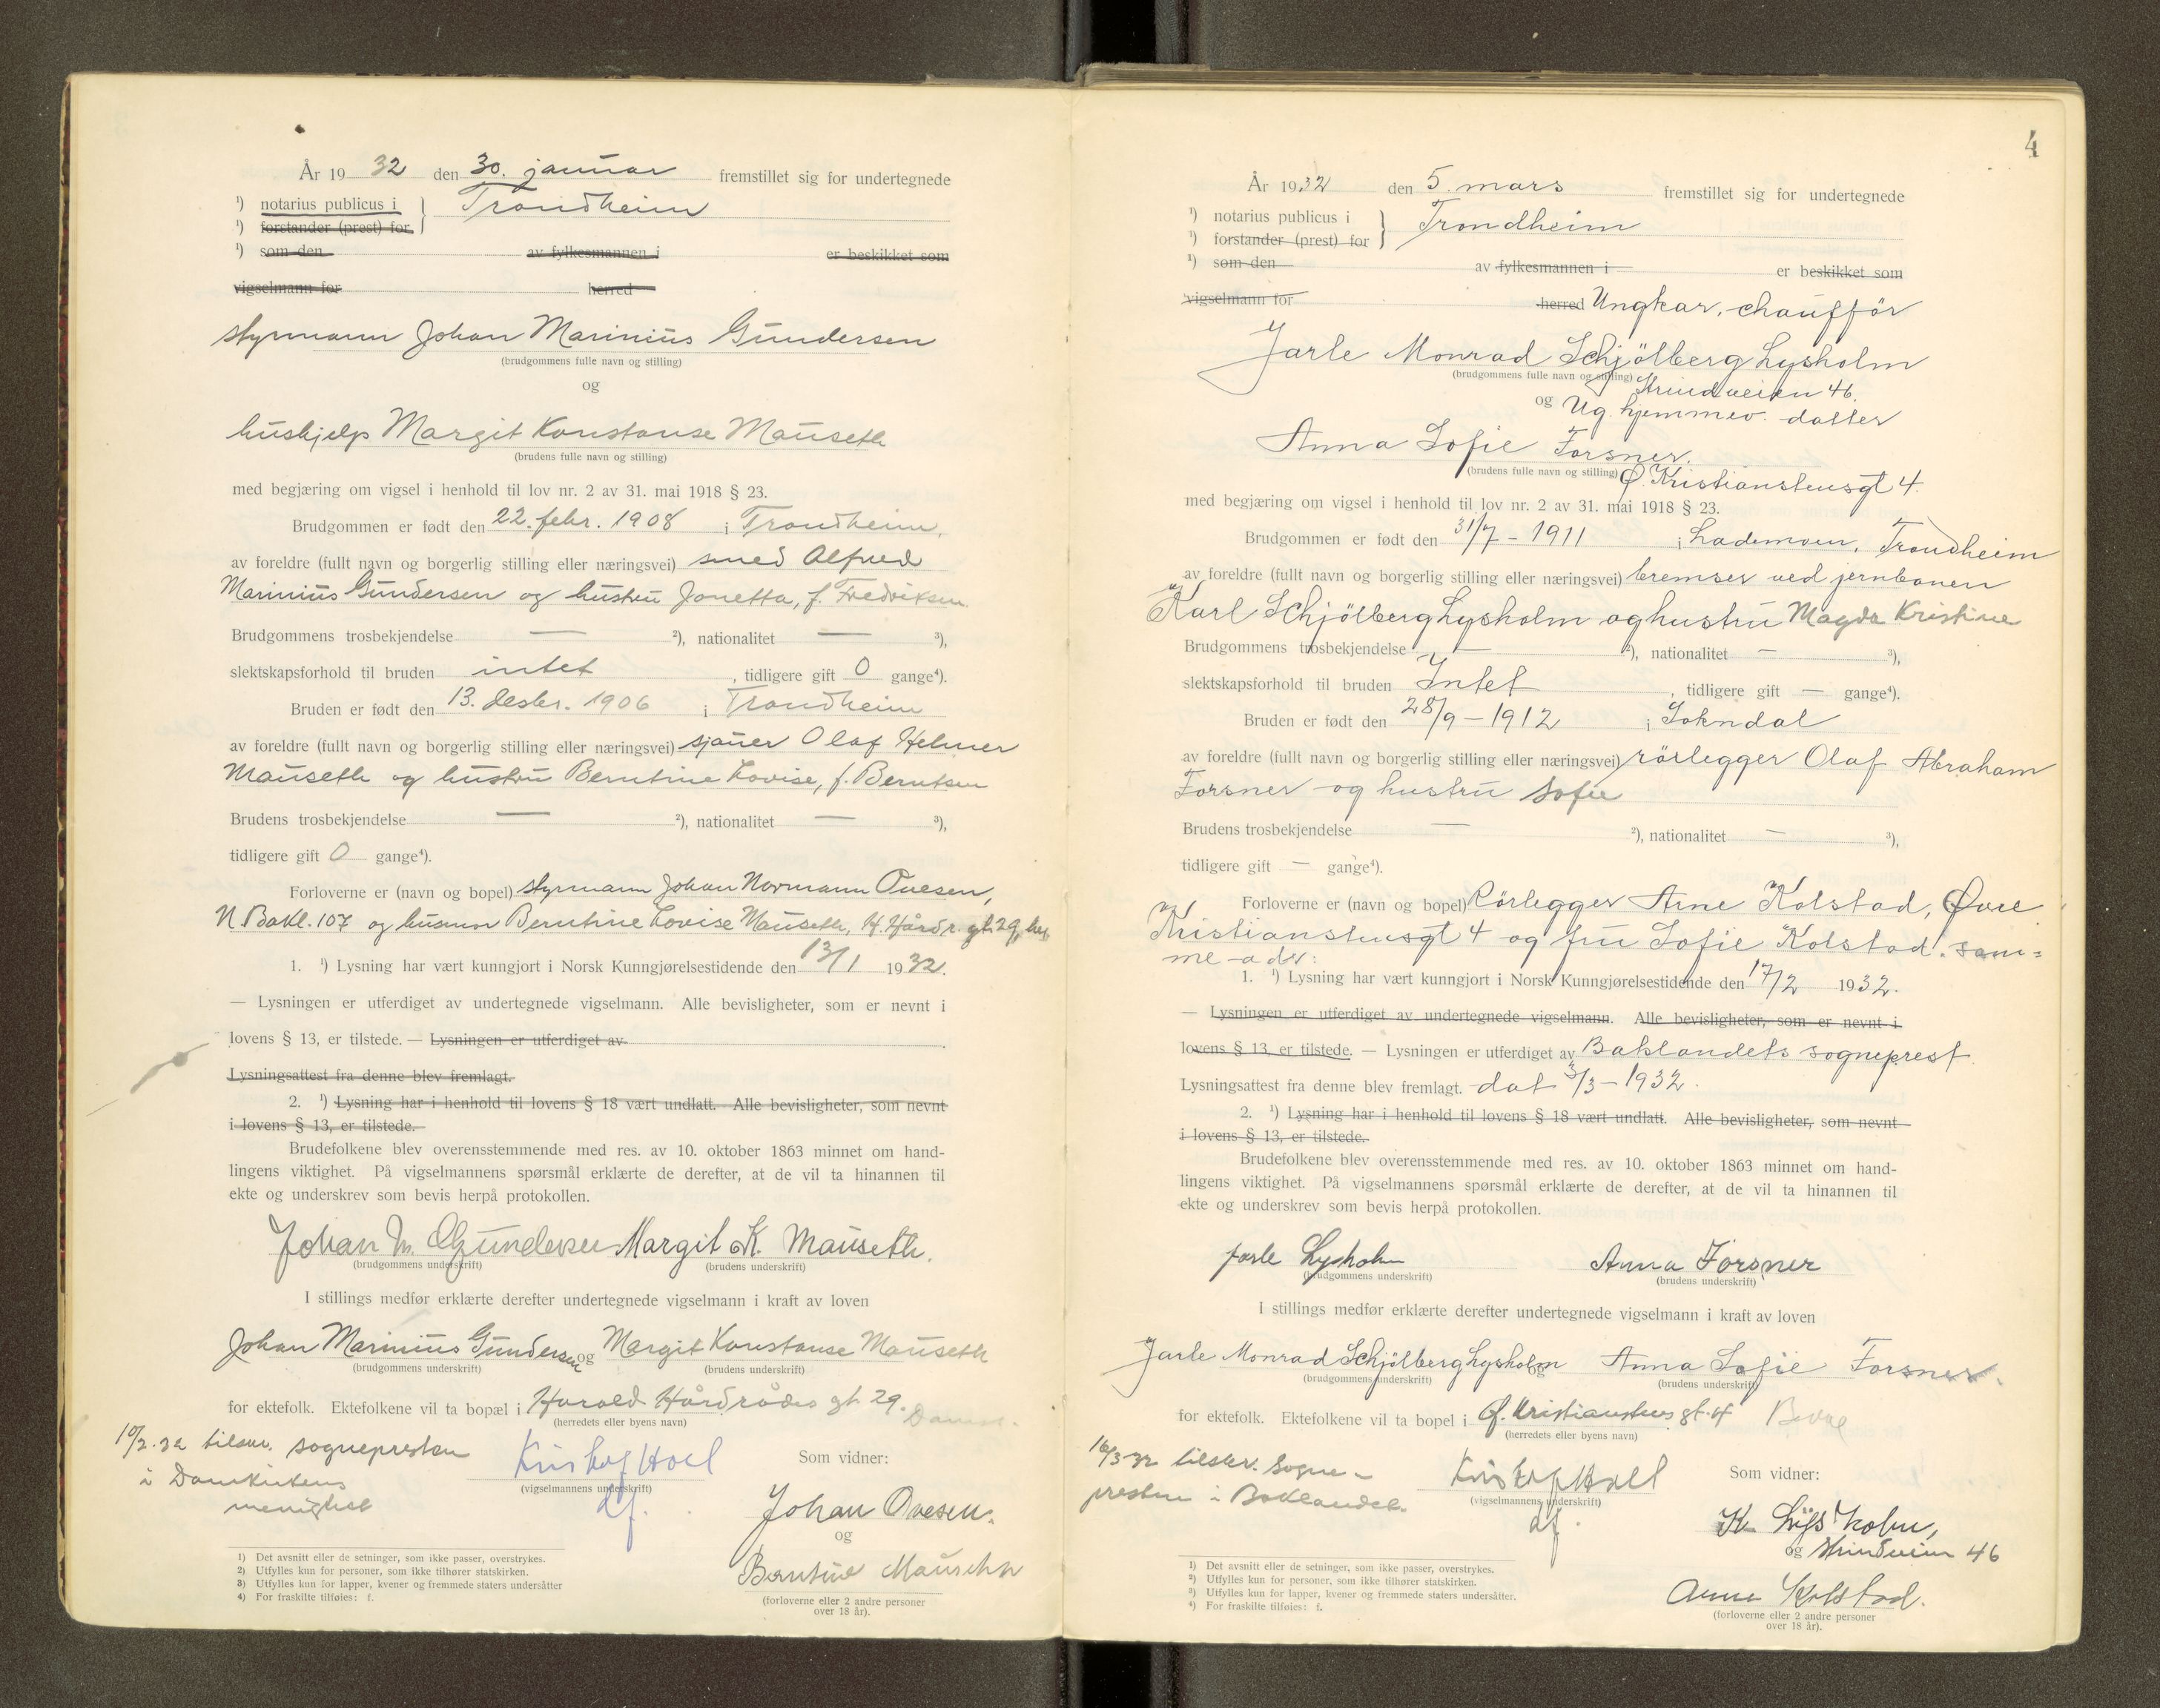 År 1932 den 30. januar fremstillet sig for undertegnede
1) notarius publicus i } Trondheim
1) forstander (prest) for
1) som den av fylkesmannen i er beskikket som
vigselmann for herred
styrmann Johan Marinius Gundersen
(brudgommens fulle navn og stilling)
og
hushjelp Margit Konstanse Mauseth
(brudens fulle navn og stilling)
med begjæring om vigsel i henhold til lov nr. 2 av 31. mai 1918 § 23.
Brudgommen er født den 22. febr. 1908 i Trondheim,
av foreldre (fullt navn og borgerlig stilling eller næringsvei) smed Alfred
Marinius Gundersen og hustru Jonetta, f. Fredriksen
Brudgommens trosbekjendelse — 2), nationalitet — 3),
slektskapsforhold til bruden intet, tidligere gift 0 gange4).
Bruden er født den 13. desbr. 1906 i Trondheim
av foreldre (fullt navn og borgerlig stilling eller næringsvei) sjauer Olaf Helmer
Mauseth og hustru Berntine Lovise, f. Berntsen
Brudens trosbekjendelse — 2), nationalitet — 3),
tidligere gift 0 gange4).
Forloverne er (navn og bopel) styrmann Johan Normann Ovesen,
N. Bakl. 107 og husmor Berntine Lovise Mauseth, H. Hårdr. gt. 29, her
1. 1) Lysning har vært kunngjort i Norsk Kunngjørelsestidende den 13/1 1932.
— Lysningen er utferdiget av undertegnede vigselmann. Alle bevisligheter, som er nevnt i
lovens § 13, er tilstede. — Lysningen er utferdiget av
Lysningsattest fra denne blev fremlagt.
2. 1) Lysning har i henhold til lovens § 18 vært undlatt. Alle bevisligheter, som nevnt
i lovens § 13, er tilstede.
Brudefolkene blev overensstemmende med res. av 10. oktober 1863 minnet om hand-
lingens viktighet. På vigselmannens spørsmål erklærte de derefter, at de vil ta hinannen til
ekte og underskrev som bevis herpå protokollen.
Johan M. Gundersen Margit K. Mauseth.
(brudgommens underskrift) (brudens underskrift)
I stillings medfør erklærte derefter undertegnede vigselmann i kraft av loven
Johan Marinius Gundersen og Margit Konstanse Mauseth
(brudgommens underskrift) (brudens underskrift)
for ektefolk. Ektefolkene vil ta bopæl i Harald Hårdrådes gt. 29.
(herredets eller byens navn)
10/2.32 tilskr. sognepresten
i Domkirkens
menighet
Kristof Hoel
(vigselmannens underskrift)
df.
Som vidner:
Johan Ovesen.
og
Berntine Mauseth
(forloverne eller 2 andre personer
over 18 år).
1) Det avsnitt eller de setninger, som ikke passer, overstrykes.
2) Utfylles kun for personer, som ikke tilhører statskirken.
3) Utfylles kun for lapper, kvener og fremmede staters undersåtter
4) For fraskilte tilføies: f.
4
År 1932 den 5. mars fremstillet sig for undertegnede
1) notarius publicus i } Trondheim
1) forstander (prest) for
1) som den av fylkesmannen i er beskikket som
vigselmann for herred Ungkar, chaufför
Jarle Monrad Schjölberg Lysholm
(brudgommens fulle navn og stilling) Strindveien 46.
og Ug. hjemmev. datter
Anna Sofie Forsner.
(brudens fulle navn og stilling) Ø. Kristianstensgt 4.
med begjæring om vigsel i henhold til lov nr. 2 av 31. mai 1918 § 23.
Brudgommen er født den 31/7 - 1911 i Lademoen, Trondheim
av foreldre (fullt navn og borgerlig stilling eller næringsvei) bremser ved jernbanen
Karl Schjölberg Lysholm og hustru Magda Kristine
Brudgommens trosbekjendelse — 2), nationalitet — 3),
slektskapsforhold til bruden Intet, tidligere gift — gange4).
Bruden er født den 28/9 - 1912 i Sokndal
av foreldre (fullt navn og borgerlig stilling eller næringsvei) rörlegger Olaf Abraham
Forsner og hustru Sofie
Brudens trosbekjendelse — 2), nationalitet — 3),
tidligere gift — gange4).
Forloverne er (navn og bopel) Rörlegger Arne Kolstad, Øvre
Kristianstensgt 4 og fru Sofie Kolstad. sam=
me adr:
1. 1) Lysning har vært kunngjort i Norsk Kunngjørelsestidende den 17/2 1932.
— Lysningen er utferdiget av undertegnede vigselmann. Alle bevisligheter, som er nevnt i
lovens § 13, er tilstede. — Lysningen er utferdiget av Baklandets sogneprest
Lysningsattest fra denne blev fremlagt. dat 3/3 - 1932.
2. 1) Lysning har i henhold til lovens § 18 vært undlatt. Alle bevisligheter, som nevnt
i lovens § 13, er tilstede.
Brudefolkene blev overensstemmende med res. av 10. oktober 1863 minnet om hand-
lingens viktighet. På vigselmannens spørsmål erklærte de derefter, at de vil ta hinannen til
ekte og underskrev som bevis herpå protokollen.
Jarle Lysholm Anna Forsner
(brudgommens underskrift) (brudens underskrift)
I stillings medfør erklærte derefter undertegnede vigselmann i kraft av loven
Jarle Monrad Schjölberg Lysholm og Anna Sofie Forsner.
(brudgommens underskrift) (brudens underskrift)
for ektefolk. Ektefolkene vil ta bopel i Ø. Kristianstens gt. 4
(herredets eller byens navn)
16/3-32 tilskr. Sogne-
presten i Baklandet.
Kristof Hoel
(vigselmannens underskrift)
df.
Som vidner:
K. Lysholm,
og Strindveien 46
Arne Kolstad.
(forloverne eller 2 andre personer
over 18 år).
1) Det avsnitt eller de setninger, som ikke passer, overstrykes.
2) Utfylles kun for personer, som ikke tilhører statskirken.
3) Utfylles kun for lapper, kvener og fremmede staters undersåtter.
4) For fraskilte tilføies: f.